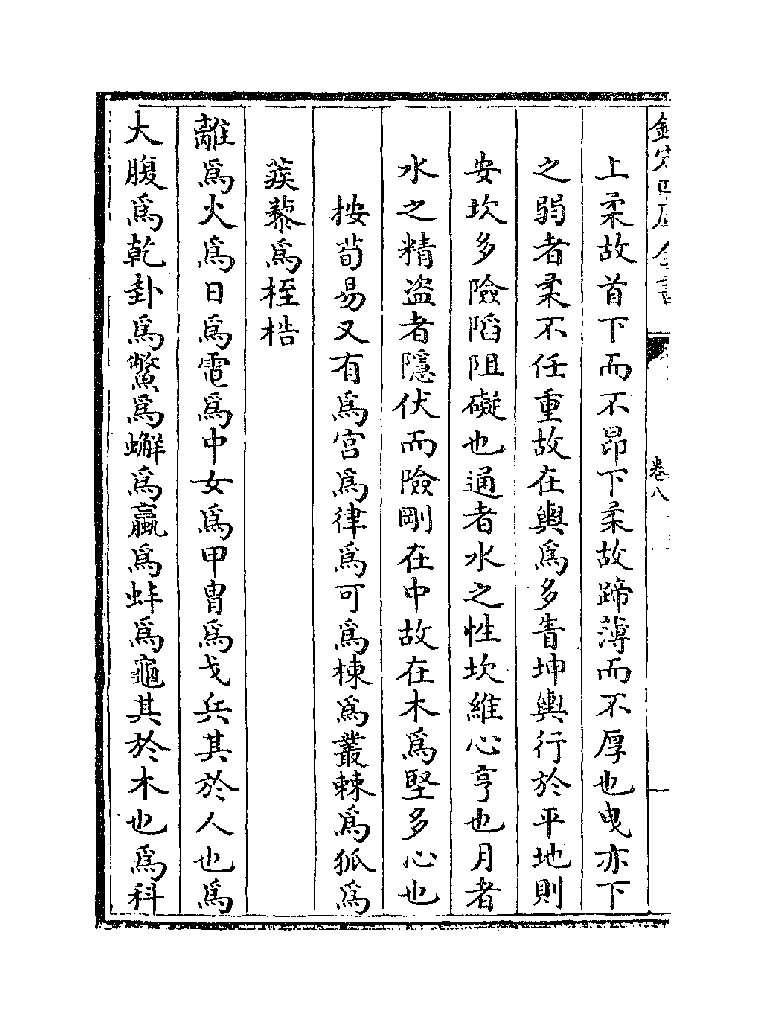 欽定四庫全書
卷八
上柔故首下而不昂下柔故蹄薄而不厚也曳亦下
之弱者柔不任重故在輿為多眚坤輿行於平地則
安坎多險陷阻礙也通者水之性坎維心亨也月者
水之精盗者隱伏而險剛在中故在木為堅多心也
按荀易又有為宮為律為可為棟為叢棘為狐為
蒺藜為桎梏
離為火為日為電為中女為甲胄為戈兵其於人也為
大腹為乾卦為鱉為蠏為蠃為蚌為龜其於木也為科